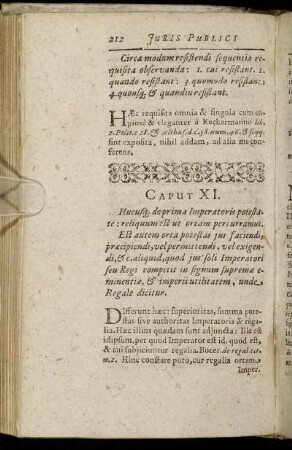 212 JURIS PUBLICI
Circa modum resistendi sequentia re-
quisita observanda: 1. cui resistant. 2.
quando resistant: 3 quomodo resistant:
4 quousq, & quandiu resistant.
HÆc requisita omnia & singula cum co-
piosè & eleganter à Keckermanno lib.
2. Polit. c. 28. & Althusio c. 38. num. 46. & seqq.
sint exposita, nihil addam, ad alia me con-
ferens.
CAPUT XI.
Hucusq, de prima Imperatoris potesta-
te: reliquum est ut ortam percurramus.
Est autem orta potestas jus faciendi,
præcipiendi, vel permittendi, vel exigen-
di, &c. aliquid, quod jure soli Imperatori
seu Regi competit in signum supremæ e-
minentiæ, & imperii utilitatem, unde
Regale dicitur.
DIfferunt hæc: superioritas, summa pote-
stas sive authoritas Imperatoris & rega-
lia. Hæc illius quædam sunt adjuncta: Illa est
id ipsum, per quod Imperator est id, quod est,
& cui subjiciuntur regalia. Bocer. de regal. ca.
m. 2. Hinc constare puto, cur regalia ortam
Imper.